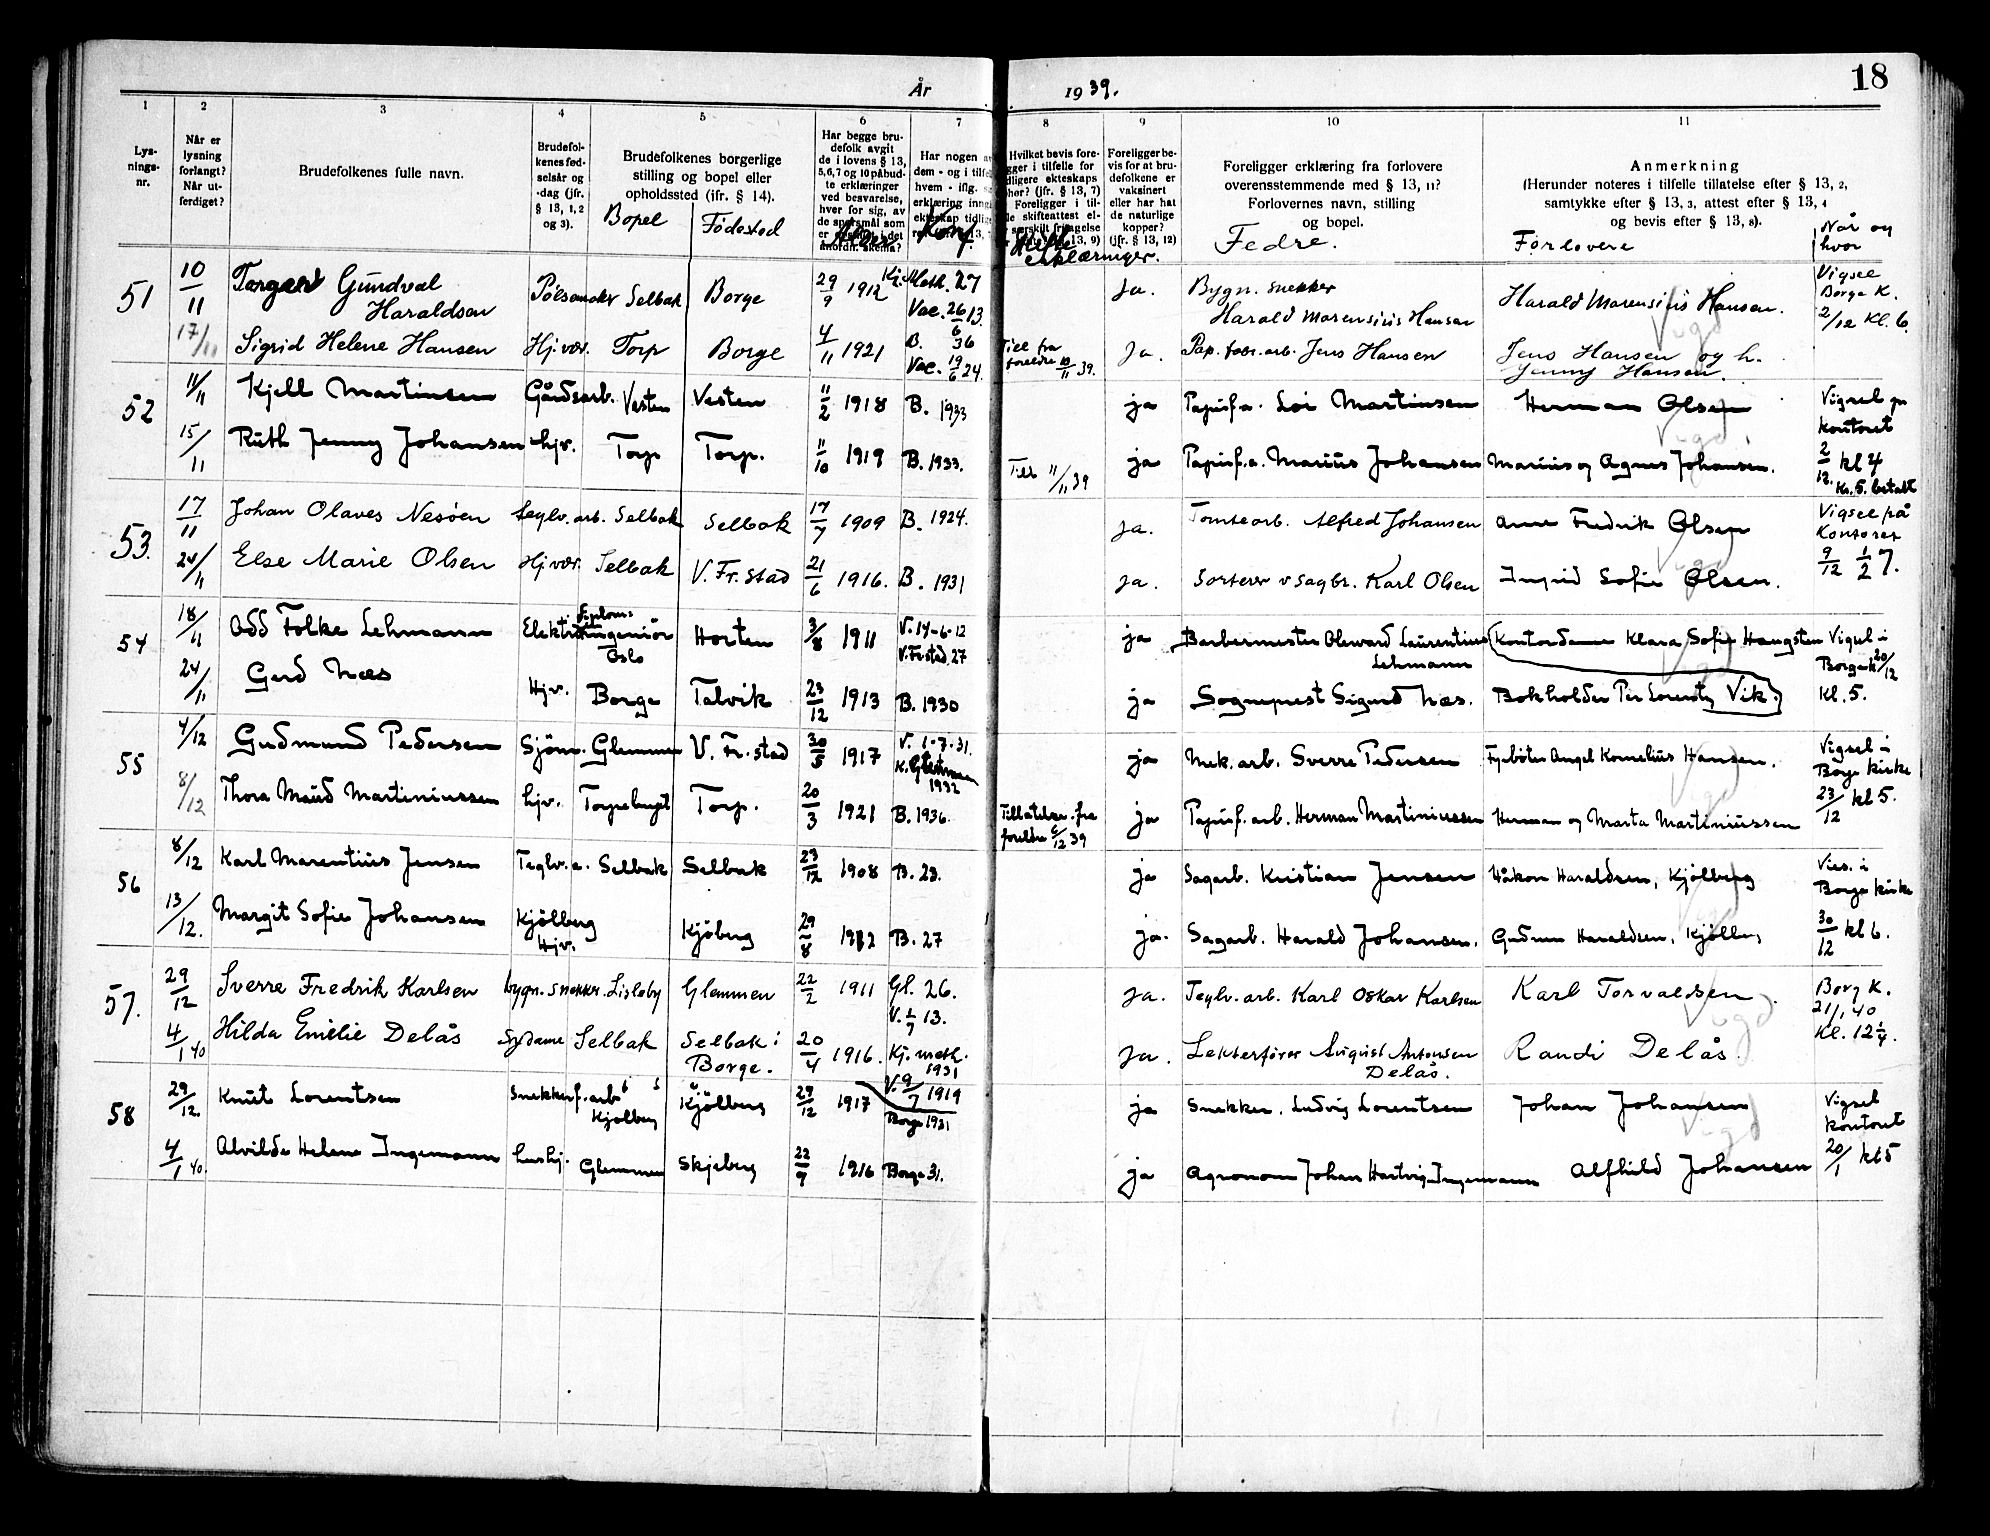 År 1939.
18
1 2 3 4 5 6 7 8 9 10 11
Lysnings-nr.
Når er lysning forlangt? Når utferdiget?
Brudefolkenes fulle navn.
Brudefolkenes fødselsår og -dag (jfr. § 13, 1, 2 og 3).
Brudefolkenes borgerlige stilling og bopel eller opholdssted (jfr. § 14).
Bopel Fødested
Har begge brudefolk avgit de i lovens § 13, 5, 6, 7 og 10 påbudte erklæringer ved besvarelse, hver for sig, av de spørsmål som er
Alder
Har nogen
Konf.
Foreligger bevis for at brudefolkene er vaksinert eller har hat de naturlige kopper? (jfr. § 13, 12)
Hefte erklæringer.
Foreligger erklæring fra forlovere overensstemmende med § 13, 11? Forlovernes navn, stilling og bopel.
Fedre.
Anmerkning
(Herunder noteres i tilfelle tillatelse efter § 13, 2, samtykke efter § 13, 3, attest efter § 13, 4 og bevis efter § 13, 8).
Forlovere
Når og hvor
51 10/11 Torger Gundval Haraldsen Pølsemaker Selbak Borge 29/9 1912 Kj. Meth. 27 Vac. 26/6 13. Ja. Bygn. snekker Harald Marensius Hansen Harald Marensius Hansen. Vigsel Borge K. 2/12 Kl. 6.
17/11 Sigrid Helene Hansen Hj.vær. Torp Borge 4/11 1921 B. 36 Vac. 19/6 24. Till fra foreldre 10/11 39. Ja. Pap. fabr. arb. Jens Hansen Jens Hansen og h. Jenny Hansen.
52 11/11 Kjell Martinsen Gårdsarb. Vesten Vesten 11/2 1918 B. 1933 ja Papirf.a. Loi Martinsen Herman Olsen Vigsel på kontoret
15/11 Ruth Jenny Johansen hjv. Torp Torp. 11/10 1919 B. 1933. Till 11/11 39 ja Papirf.a. Marius Johansen Marius og Agnes Johansen. 2/12. kl 4 Kr. 5. betalt
53. 17/11 Johan Olaves Nesøen teglv. arb. Selbak Selbak 17/7 1909 B. 1924. Ja. Tomtearb. Alfred Johansen Arne Fredrik Olsen Vigsel på Kontoret
24/11 Else Marie Olsen Hj.vær. Selbak V. Fr.stad 21/6 1916. B. 1931 Ja. Sorterer v Sagbr. Karl Olsen Ingrid Sofie Olsen. 9/12 1/2 7.
54 18/11 Odd Folke Lehmann Elektroingeniør Diplom: Oslo Horten 3/8 1911 V. 14-6-12 V. Fr.stad 27 ja Barbermester Olevard Laurentius Lehmann Kontordame Klara Sofie Haugsten Vigsel i Borge k 20/12
24/11 Gerd Næs Hjv. Borge Talvik 23/12 1913 B. 1930 ja Sogneprest Sigurd Næs. Bokholder Per Lorentz Vik. Kl. 5.
55 4/12 Gudmund Pedersen Sjøm. Glemmen V. Fr.stad 30/5 1917 V. 1-7-31. K. Glemmen 1932 ja Mek. arb. Sverre Pedersen Fyrbøter Angel Kornelius Hansen. Vigsel i Borge kirke
8/12 Thora Maud Martiniussen hjv. Torpehugst Torp. 20/3 1921 B. 1936. Tillatelse fra foreldre 5/12 39 ja Papirf. arb. Herman Martiniussen Herman og Marta Martiniussen 23/12 kl 5.
56 8/12 Karl Marentius Jensen Teglv. a. Selbak Selbak 23/12 1908 B. 23. ja Sagarb. Kristian Jensen Håkon Haraldsen, Kjølberg Vies. i Borge kirke
13/12. Margit Sofie Johansen Kjølberg Hjv. Kjøberg 29/8 1912 B. 27 ja. Sagarb. Harald Johansen. Gudrun Haraldsen, Kjølberg 30/12 kl 6.
57. 29/12 Sverre Fredrik Karlsen bygn. snekker. Lisleby Glemmen 22/2 1911 Gl. 26. V. 1/7 13. Ja. Teglv. arb. Karl Oskar Karlsen Karl Torvaldsen. Borg K. 21/1 40
4/1 40 Hilda Emilie Delås Sydame Selbak Selbak i Borge. 20/4 1916. Kj. meth. 1931 Ja. Lekterfører August Antonsen Delås. Randi Delås. Kl. 12 1/4.
58 29/12. Knut Lorentsen Snekkerf. arb Kjølberg Kjølberg 29/12 1917 V. 9/7 1919 Borge 1931 ja Snekker. Ludvig Lorentsen Johan Johansen Vigsel kontoret
4/1 40. Alvilde Helene Ingemann hushj. Glemmen Skjeberg 22/9 1916 Borge 31. ja Agronom Johan Hartvig Ingemann Alfhild Johansen 20/1 kl 5